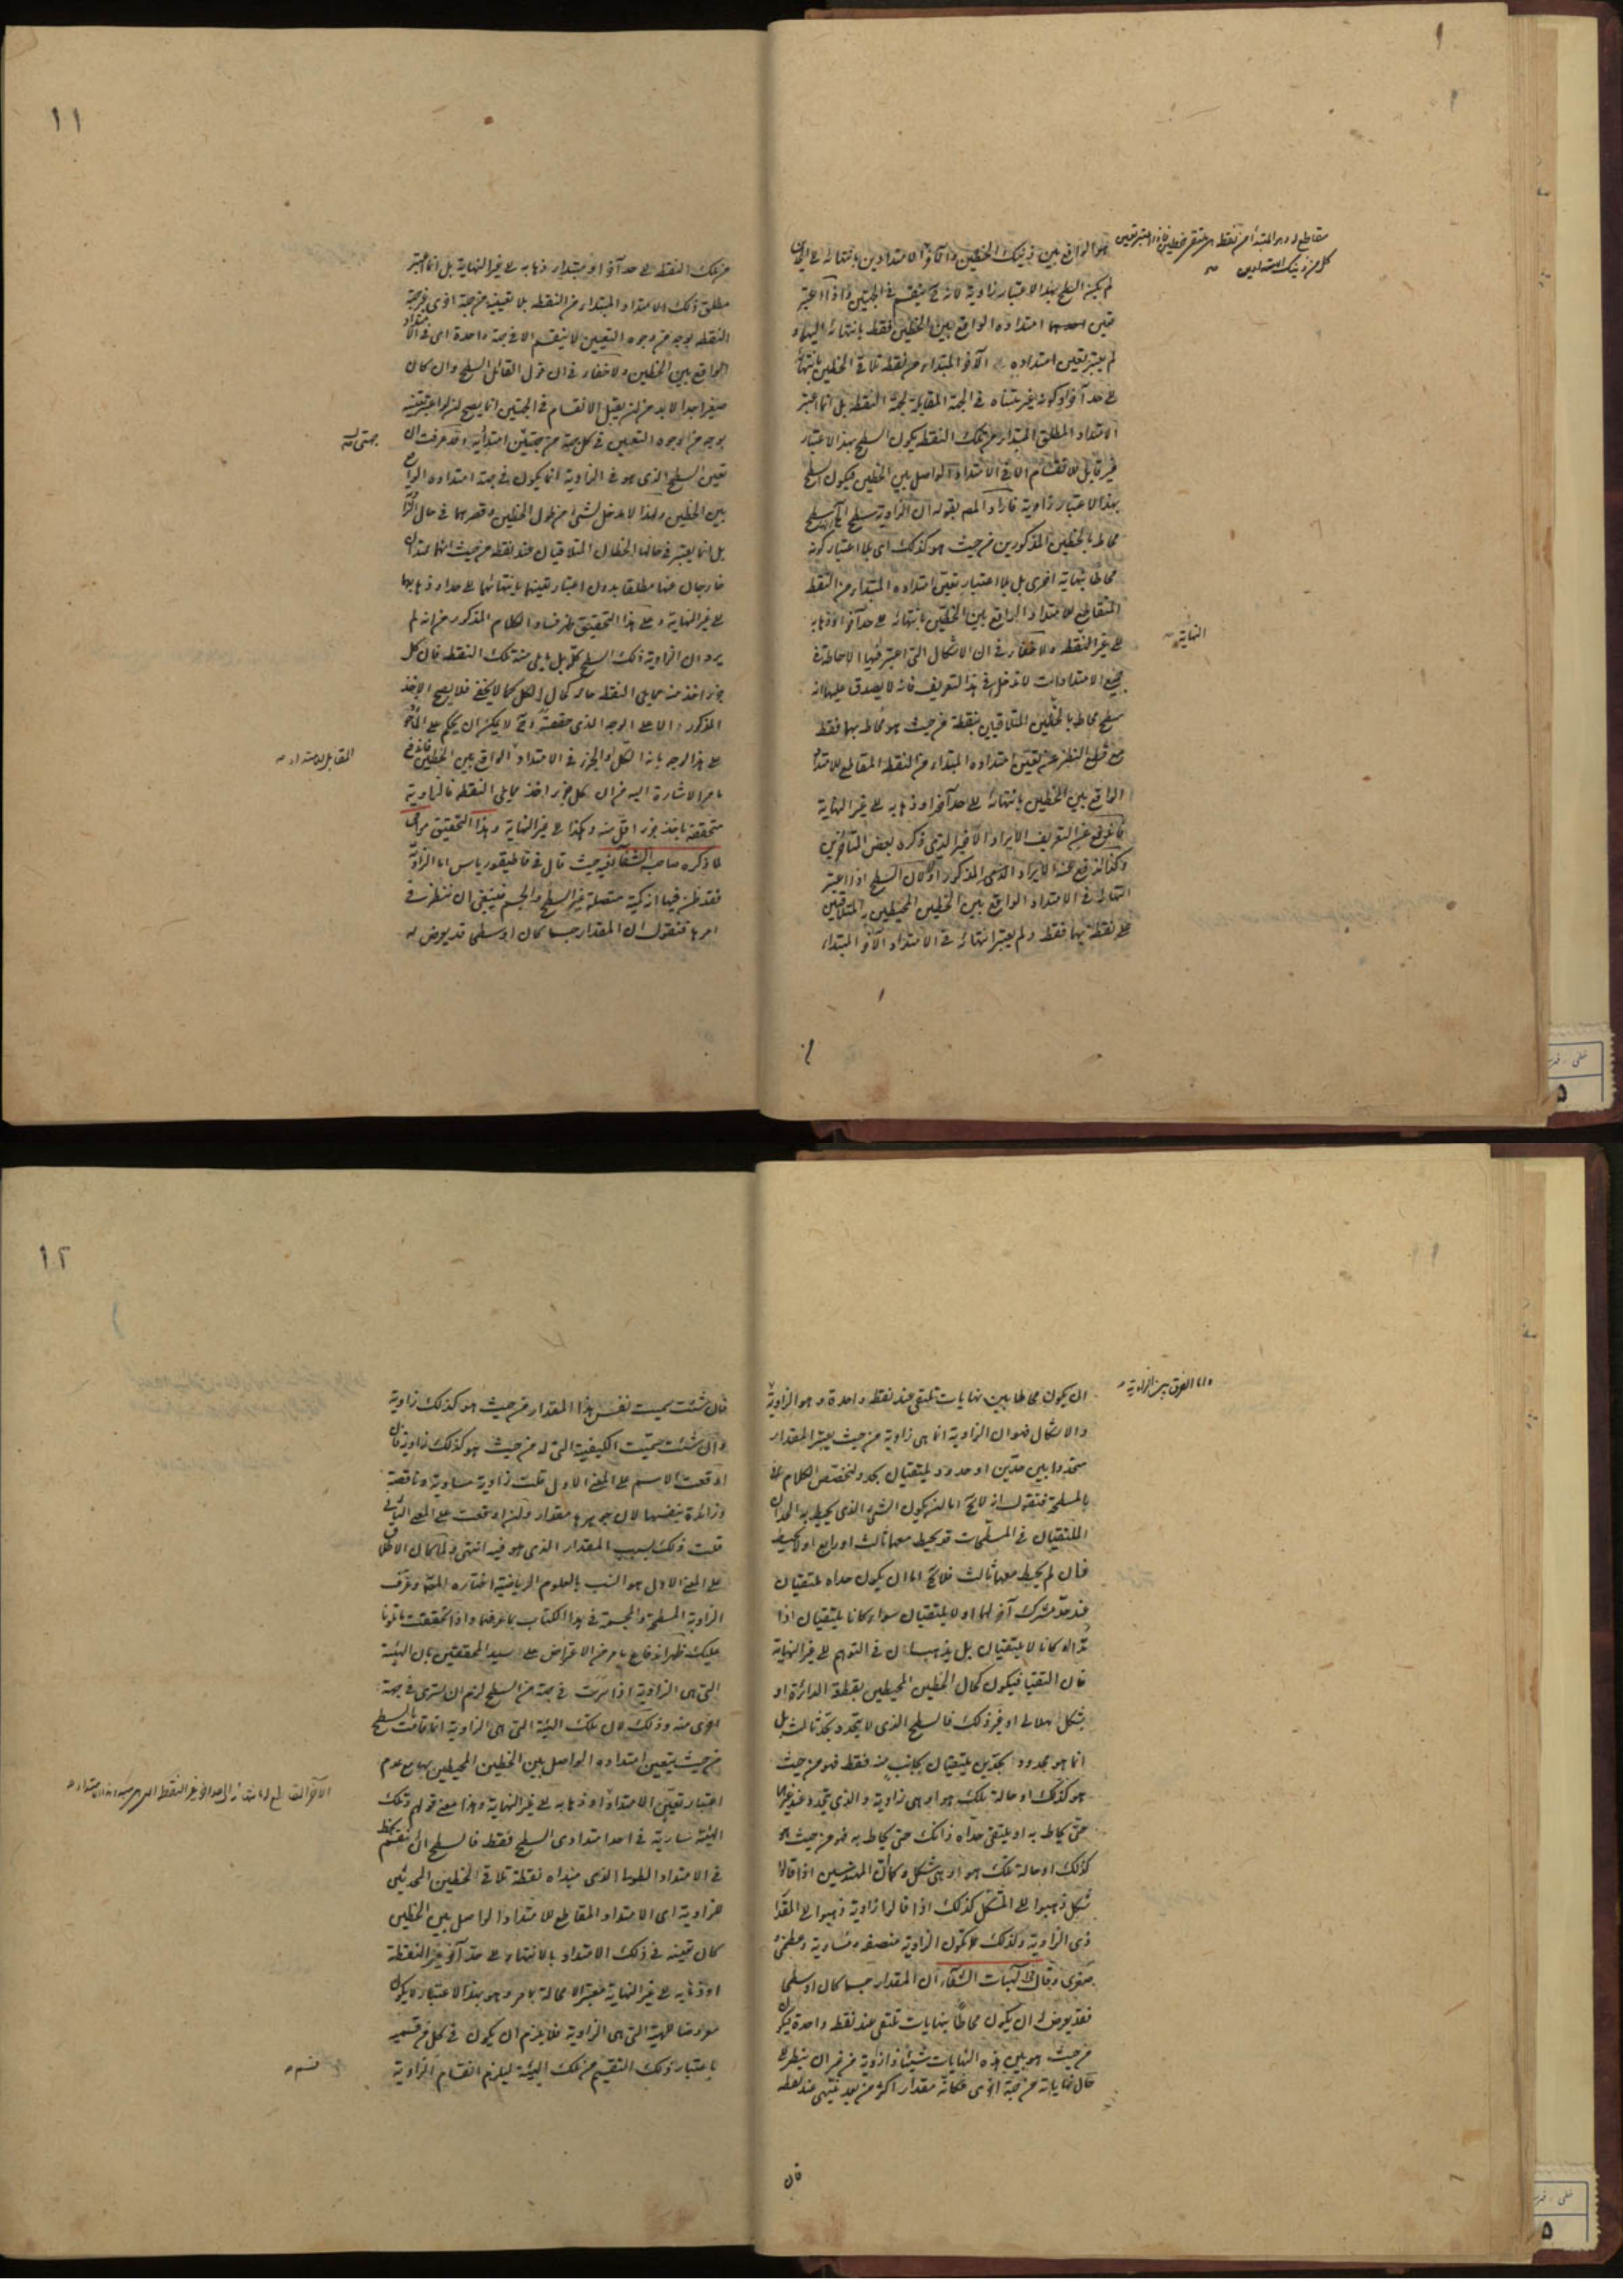 هو الواقع بين ذينك الخطين والآخر الامتدادين بانتهائه الى
لم يكن السطح بهذا الاعتبار زاوية لانه ينقسم في الجهتين واذا اعتبر
تعين امتداده الواقع بين الخطين فقط بانتهائه اليهما و
لم يعتبر تعين امتداده الآخر المبتداء من نقطة تلاقي الخطين بانتهائه
الى حد آخر او كونه غير متناه في الجهة المقابلة لجهة النقطة بل انما اعتبر
الامتداد المطلق المبتداء من تلك النقطة يكون السطح بهذا الاعتبار
غير قابل للانقسام الا في الامتداد الواصل بين الخطين فيكون السطح
بهذا الاعتبار زاوية فاراد المصـ بقوله ان الزاوية سطح
محاط بالخطين المذكورين من حيث هو كذلك اى بلا اعتبار كونه
محاطا بنهاية اخرى بل بلا اعتبار تعين امتداده المبتداء من النقطة
المتقاطع للامتداد الواقع بين الخطين بانتهائه الى حد آخر او ذهابه
الى غير النقطة ولا خفاء في ان الاشكال التى اعتبر فيها الاحاطة في
جميع الامتدادات لا تدخل في هذا التعريف فانه لا يصدق عليها انه
سطح محاط بالخطين المتلاقيين بنقطة من حيث هو محاط بهما فقط
مع قطع النظر عن تعين امتداده المبتداء من النقطة المقاطع للامتداد
الواقع بين الخطين بانتهائه الى حد آخر او ذهابه الى غير النهاية
فاندفع عن التعريف الايراد الاخير الذى ذكره بعض المتأخرين
وكذا اندفع عنه الايراد المذكور اولا لان السطح اذا اعتبر
انتهائه في الامتداد الواقع بين الخطين المحيطين المتلاقيين
على نقطة بهما فقط ولم يعتبر انتهائه في الامتداد الآخر المبتداء
النهاية
١١
من تلك النقطة الى حد آخر او مبتداء ذهابه الى غير النهاية بل انما اعتبر
مطلق ذلك الامتداد المبتداء من النقطة بلا تعيينه من جهة اخرى غير جهة
النقطة بوجه من وجوه التعيين لا ينقسم الا في جهة واحدة اى في الامتداد
الواقع بين الخطين ولا خفاء في ان قول القائل السطح وان كان
صغيرا جدا لا بد من ان يقبل الانقسام في الجهتين انما يصح لو اعتبر تعينه
بوجه من الوجوه التعيين في كل جهة من جهتين امتدائيه وقد عرفت ان
تعين السطح الذى هو في الزاوية انما يكون في جهة امتداده الواقع
بين الخطين ولهذا لا مدخل لشئ من طول الخطين وقصرهما في حال الزاوية
بل انما يعتبر في حالها الخطان المتلاقيان عند نقطة من حيث انهما ممتدان
خارجان عنها مطلقا بدون اعتبار تعينهما بانتهائهما الى حد او ذهابهما
الى غير النهاية وعلى هذا التحقيق ظهر فساد الكلام المذكور من انه لم
يرد ان الزاوية ذلك السطح كله بل ما يلى منه تلك النقطة فان كل
جزء اخذ منه مما يلى النقطة حاله كحال الكل كما لا يخفى فلا يصح الاخذ
المذكور الا على الوجه الذى حققته ولا يمكن ان يحكم على المأخوذ
على هذا الوجه بانه الكل والجزء في الامتداد الواقع بين الخطين
ما مر الاشارة اليه من ان كل جزء اخذ مما يلى النقطة فالزاوية
متحققة باخذ جزء اقل منه وهكذا الى غير النهاية وهذا التحقيق
لما ذكره صاحب الشفاء حيث قال في قاطيغورياس اما الزاوية
فقد ظن فيها انه كمية متصلة غير السطح والجسم فينبغى ان ننظر في
امرها فنقول ان المقدار جسما كان او سطحا قد يعرض له
المقابل للامتداد
ان يكون محاطا بين نهايات تلتقى عند نقطة واحدة وهو الزاوية
والاشكال فهو ان الزاوية انما هى زاوية من حيث يعتبر المقدار
محدودا بين حدين او حدود يلتقيان بحد ولنخصص الكلام
بالمسطحة فنقول انه لا يخ اما ان يكون الشئ الذى يحيط به الحدان
الملتقيان في المسطحات قد يحيط معهما ثالث او رابع او لا يحيط
فان لم يحيط معهما ثالث فلا يخ اما ان يكون حداه يلتقيان
عند حد مشترك آخر لهما او لا يلتقيان سواء كانا يلتقيان اذا
مدا او كانا لا يلتقيان بل يذهبان في التوهم الى غير النهاية
فان التقيا فيكون كحال الخطين المحيطين بقطعة الدائرة او
بشكل هلالى او غير ذلك فالسطح الذى لا يتحدد بحد ثالث بل
انما هو محدود بحدين يلتقيان بجانب منه فقط فهو من حيث
هو كذلك او حاله تلك هو او هى زاوية والذى يتحدد عند
حتى يحاط به او يلتقى حداه ذانك حتى يحاط به فهو من حيث هو
كذلك او حاله تلك هو او هى شكل وكما ان المهندسين اذا قالوا
شكل ذهبوا الى المشكل كذلك اذا قالوا زاوية ذهبوا الى المقدار
ذى الزاوية ولذلك تكون الزاوية منصفة ومساوية وعظمى و
صغرى وقال في الهيات الشفاء ان المقدار جسما كان او سطحا
فقد يعرض له ان يكون محاطا بنهايات تلتقى عند نقطة واحدة فيكون
من حيث هو بين هذه النهايات شيئا ذا زاوية من غير ان ينظر الى
حال نهاياته من جهة اخرى فكانه مقدار اكثر من بعد ينتهى عند نقطة
فان
واما الفرق بين الزاوية
١٢
فان شئت سميت نفس هذا المقدار من حيث هو كذلك زاوية
وان شئت سميت الكيفية التى له من حيث هو كذلك زاوية فان
اوقعت الاسم على المعنى الاول قلت زاوية مساوية وناقصة
وزائدة بنفسها لان جوهرها مقدار وان اوقعت على المعنى الثانى
قلت ذلك بسبب المقدار الذى هو فيه انتهى ولما كان الاطلاق
على المعنى الاول هو انسب بالعلوم الرياضية اختاره المصـ وعرف
الزاوية المسطحة والمجسمة في هذا الكتاب بما عرفها واذا تحققت ما تلونا
عليك ظهر اندفاع ما مر من الاعتراض على سيد المحققين بان الهيئة
التى هى الزاوية اذا سرت في جهة من السطح لزم ان يسرى في جهة
اخرى منه وذلك لان تلك الهيئة التى هى الزاوية انما قامت بالسطح
من حيث يتعين امتداده الواصل بين الخطين المحيطين بها مع عدم
اعتبار تعين الامتداد او ذهابه الى غير النهاية وهذا معنى قولهم وتلك
الهيئة سارية في احد امتدادى السطح فقط فالسطح
في الامتداد الطولى الذى مبداه نقطة تلاقى الخطين المحدثين
للزاوية اى الامتداد المقاطع للامتداد الواصل بين الخطين
كان تعينه في ذلك الامتداد بالانتهاء الى حد آخر غير النقطة
او ذهابه الى غير النهاية معتبرا لا محالة كما مر وهو بهذا الاعتبار لا يكون
معروضا للهيئة التى هى الزاوية فلا يلزم ان يكون في كل من قسميه
باعتبار ذلك التقسيم من تلك الهيئة ليلزم انقسام الزاوية
قسم